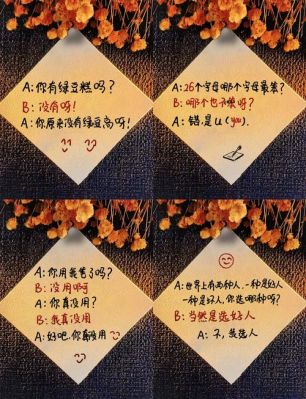 A:你有绿豆糕吗?
B:没有呀!
A:你原来没有绿豆高呀!
A:26个字母哪个字母最美?
B:哪个也吗?
A:错.是U(you).
A:你用我笔了吗?
B:没用啊
A:你真没用?
B:我真没用
A:好吧.你真没用
A:世界上有两种人.一种是好人
一种是人,你选哪种呀?
B:当然是选好人
A:我选人